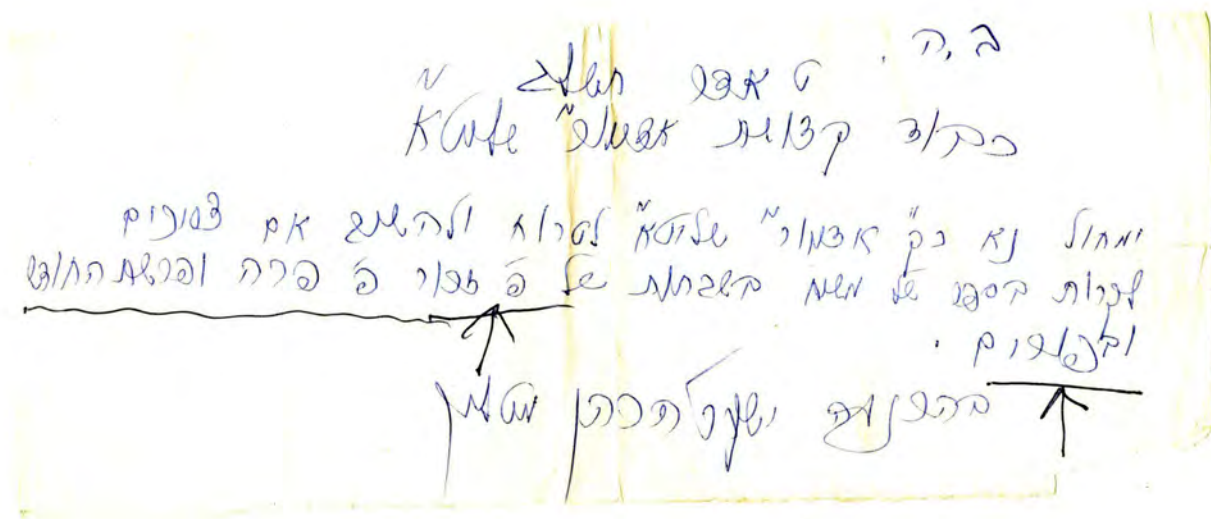 ב.ה.
ט אדר תשל"ג
כבוד קדושת אדמו"ר שליט"א
ימחול נא כ"ק אדמו"ר שליט"א לטרוח ולהשיב אם צריכים
לקרות בספר של משיח בשבתות של פ' זכור פ' פרה ופרשת החודש
ובפורים .
בהכנעה הכהן